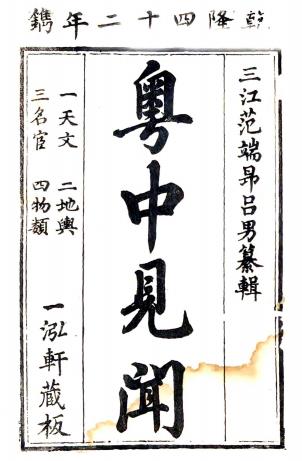 乾隆四十二年鐫
三江范端昂呂男纂輯
粵中見聞
一天文 二地輿
三名官 四物類
一泓軒藏板